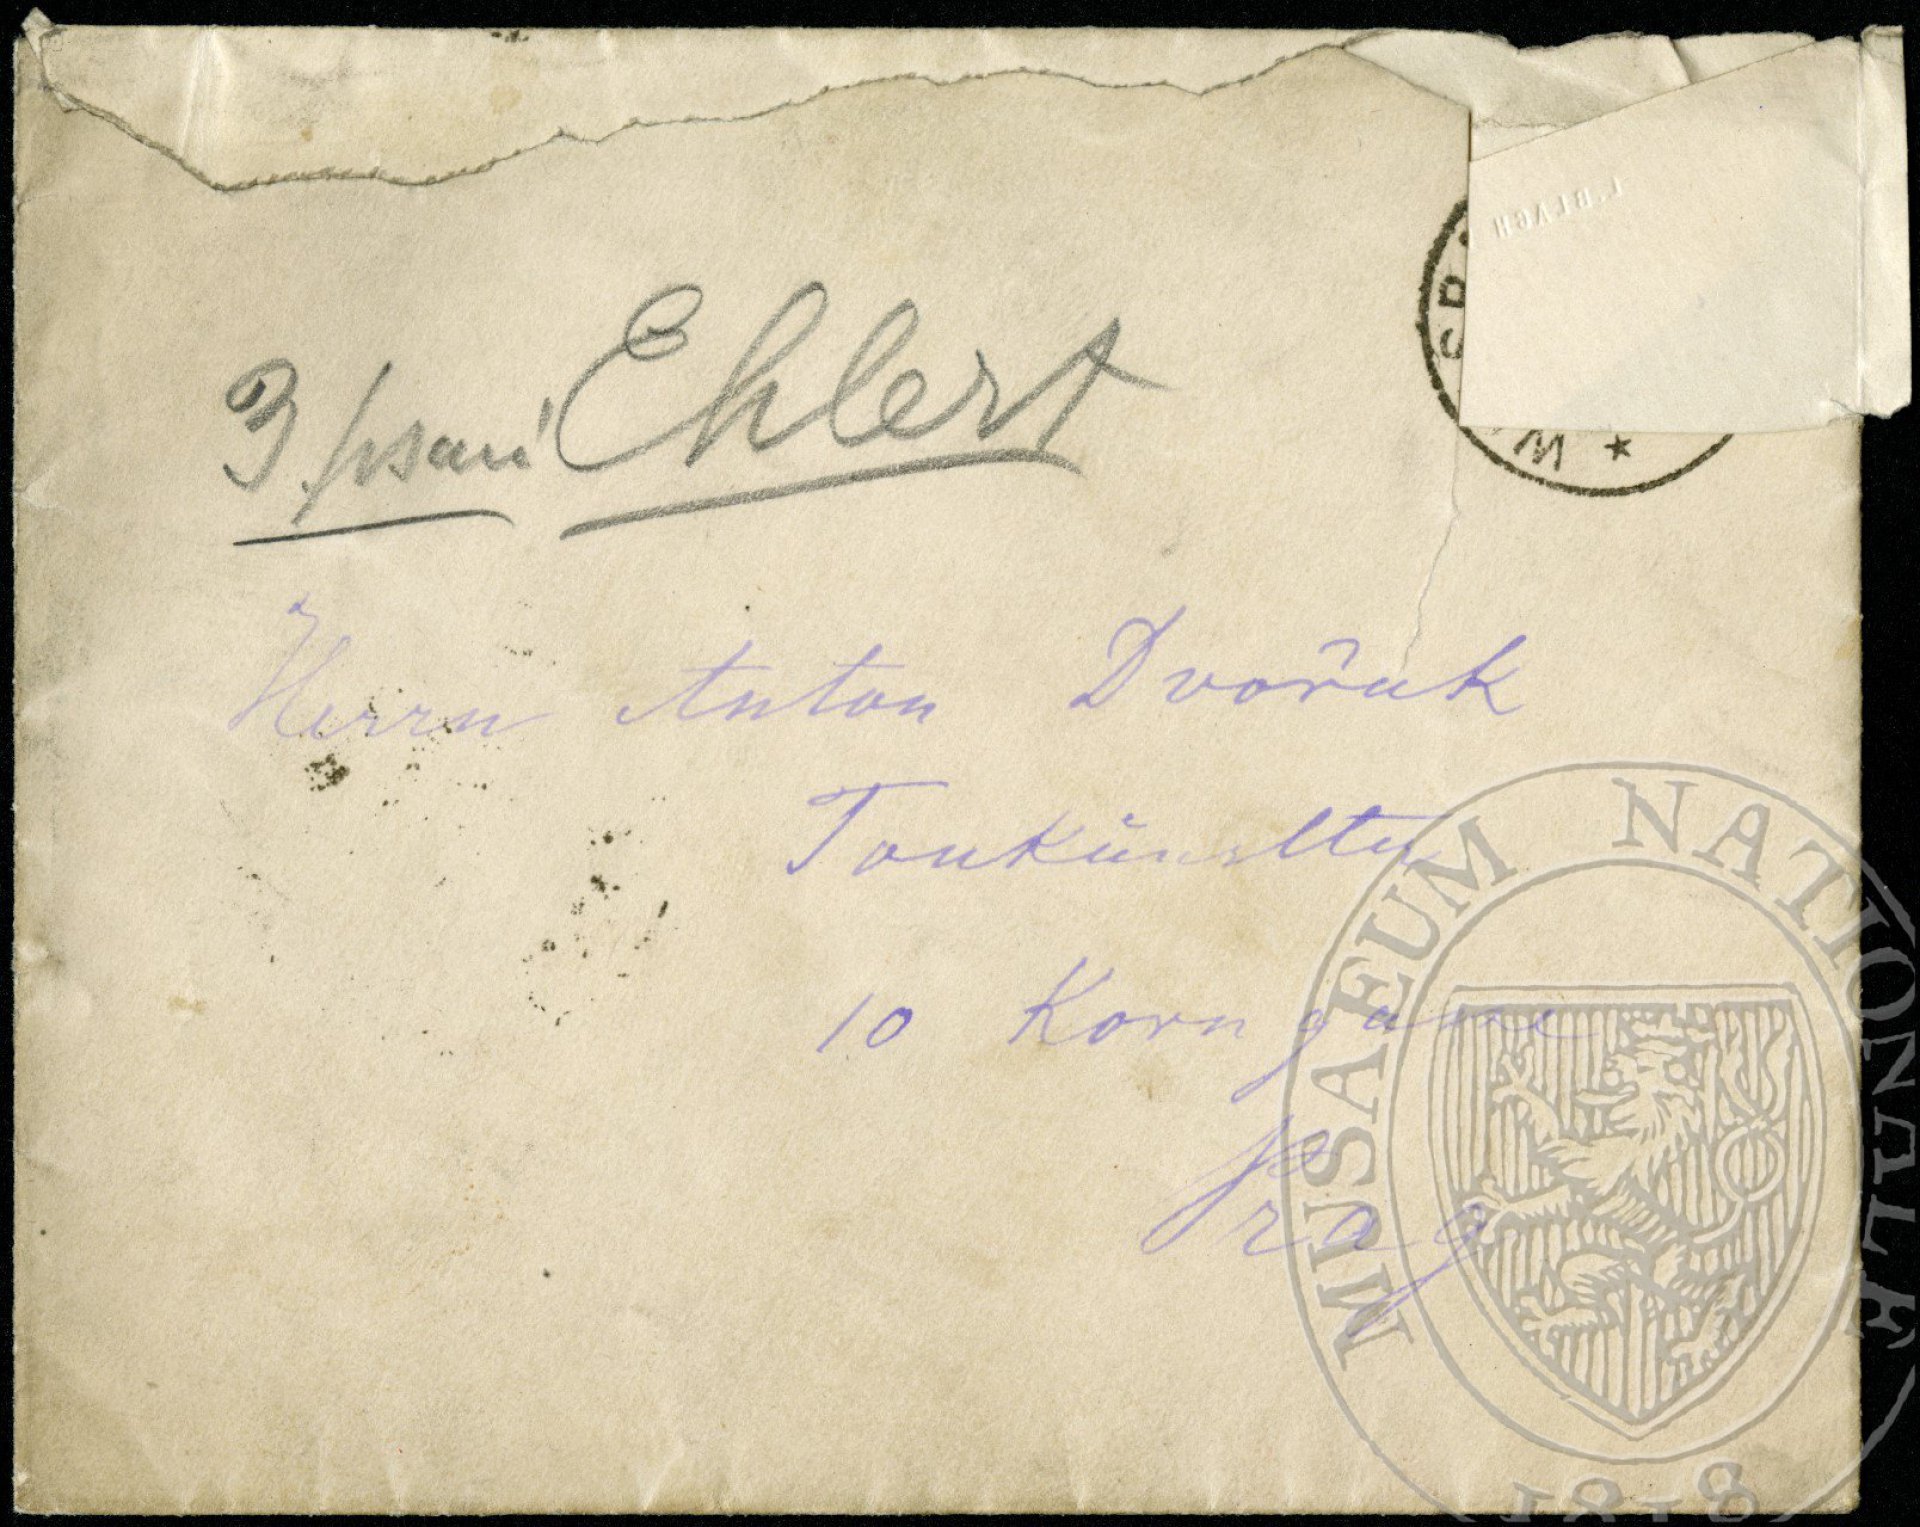 3 psaní Ehlert
Herrn Anton Dvořák
Tonkünstler
10 Korngasse
Prag
MUSAEUM NATIONALE
1818